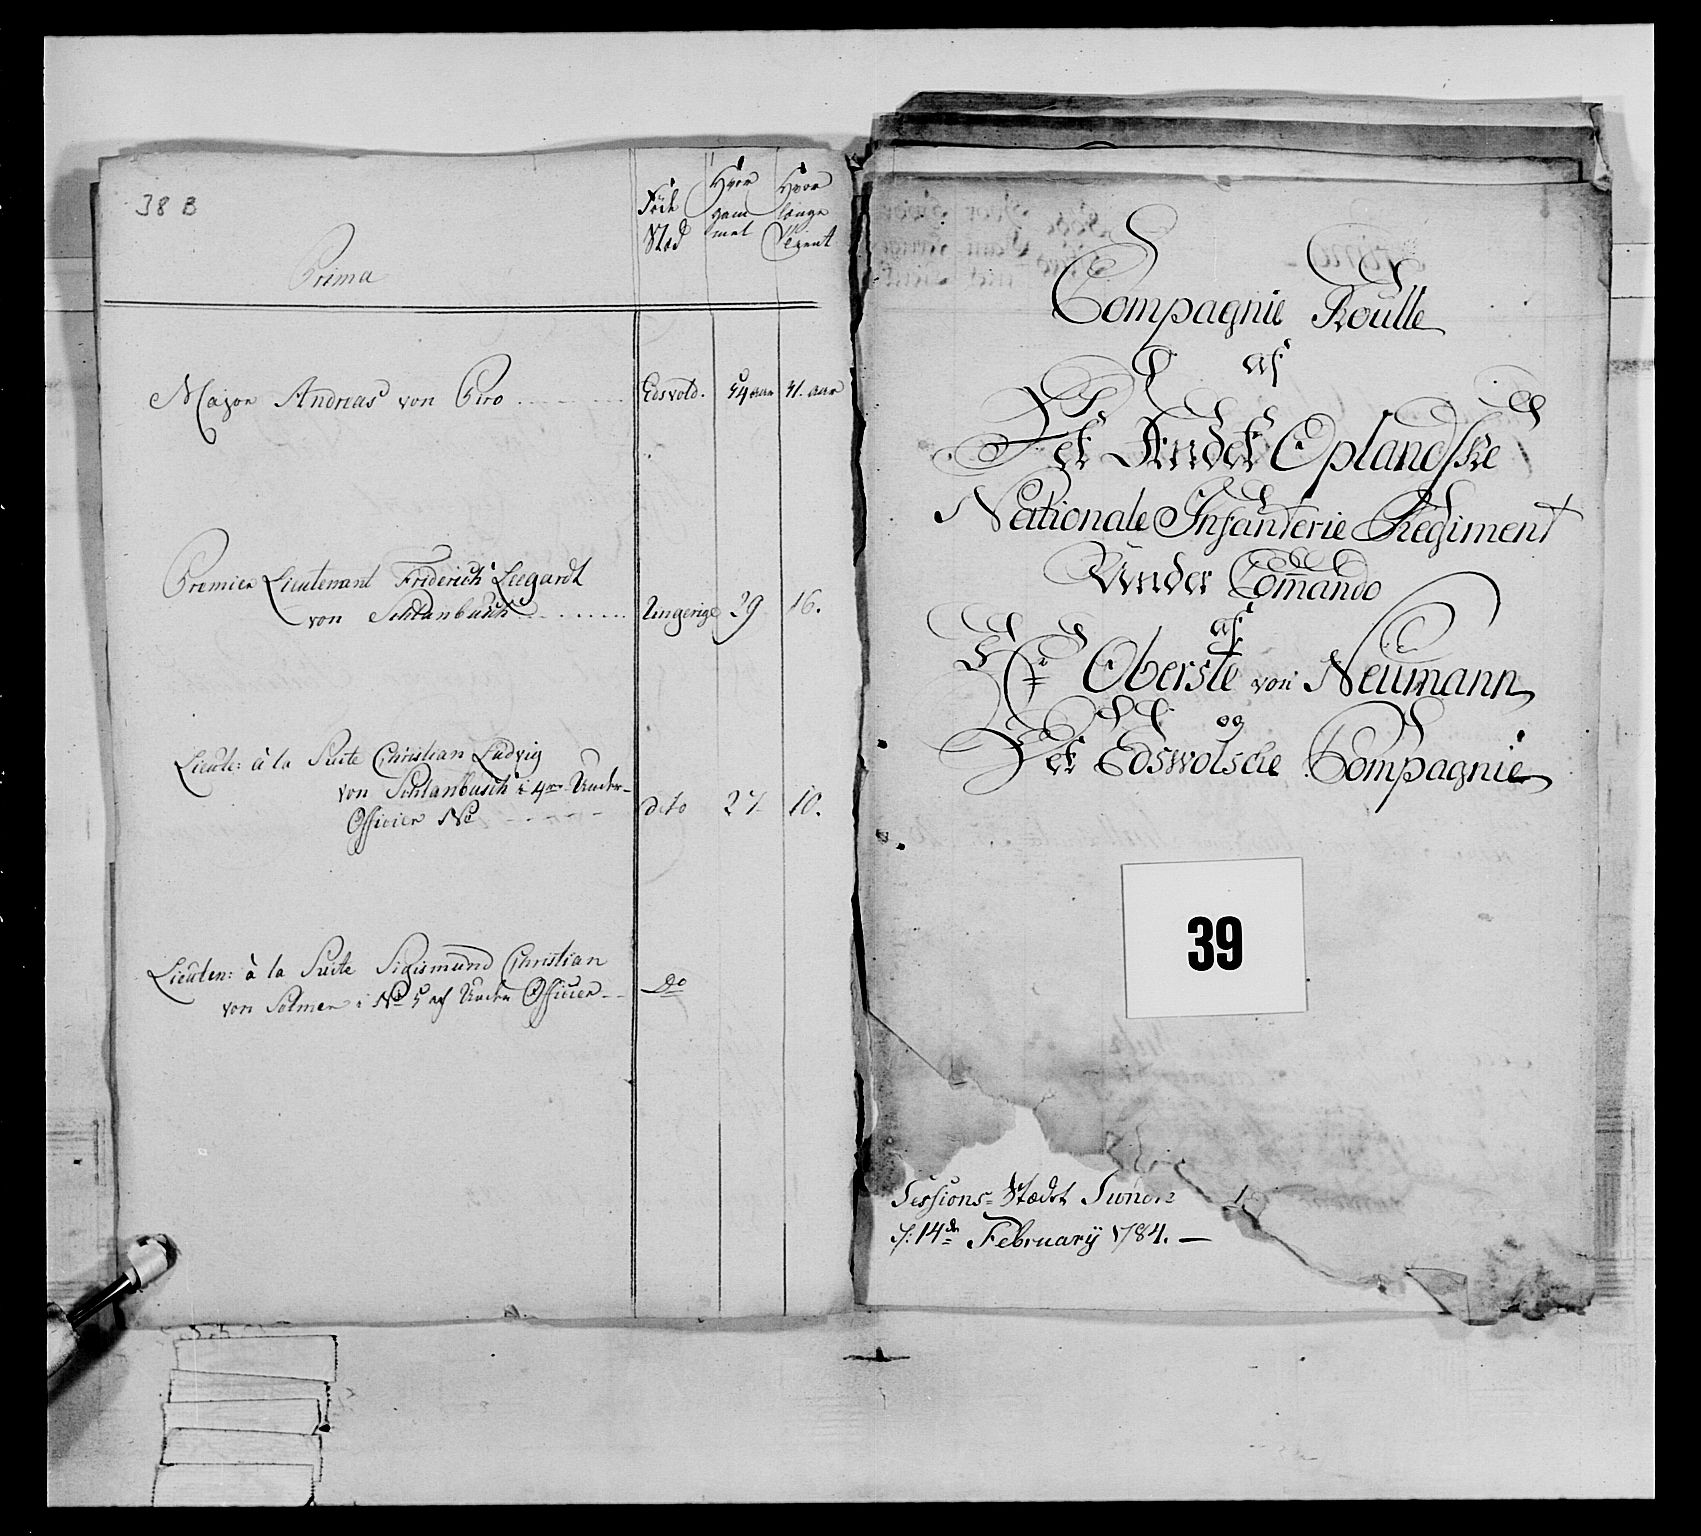 38 B
Prima
Föde
Stæd
Hvor
gam
mel
Hvor
længe
tient
Major Andreas von Ciro Edsvold. 54 aar 41. aar
Premier Lieutenant Friderich Leegardt
von Schlanbusch Ungerige 29 16.
Lieute: à la Suite Christian Ludvig
von Schlanbusch i 4de Under-
Officier No dito 27 10.
Lieuten: à la Suite Sigismund Christian
von Solmer i No 5 af Under Officier Do
Compagnie Roulle
af
Det Andet Oplandske
Nationale Infanterie Regiment
Under Commando
af
Hr Oberste von Neumann
og
Det Edswolsche Compagnie
39
Sessions-Stædet
d: 14de February 1784.